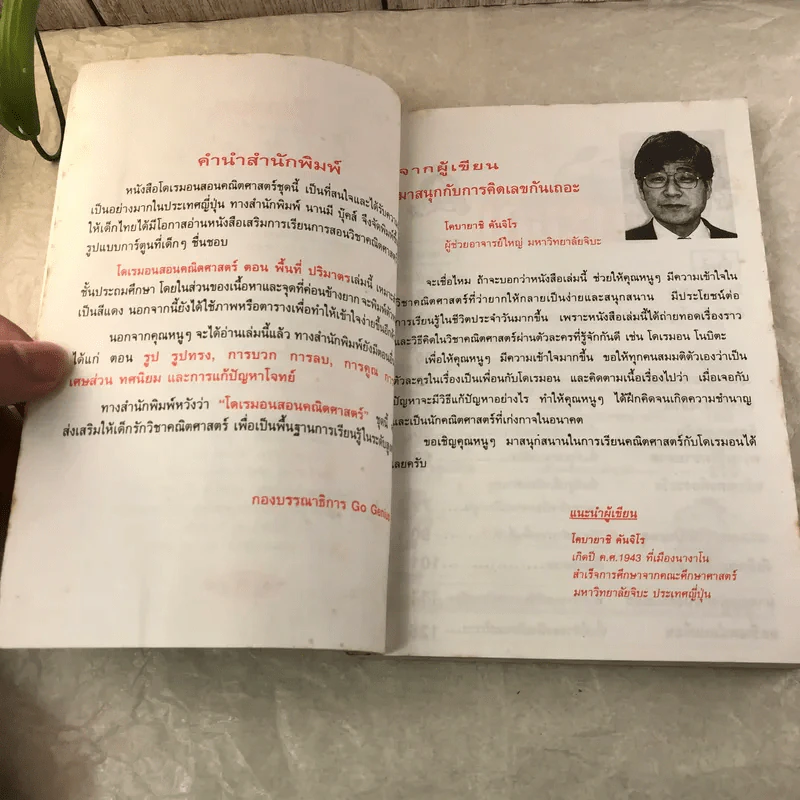 คำนำสำนักพิมพ์
หนังสือโดเรมอนสอนคณิตศาสตร์ชุดนี้ เป็นที่สนใจและได้รับความ
เป็นอย่างมากในประเทศญี่ปุ่น ทางสำนักพิมพ์ นานมี บุ๊คส์ จึงจัดพิมพ์
ให้เด็กไทยได้มีโอกาสอ่านหนังสือเสริมการเรียนการสอนวิชาคณิตศาสตร์
รูปแบบการ์ตูนที่เด็กๆ ชื่นชอบ
โดเรมอนสอนคณิตศาสตร์ ตอน พื้นที่ ปริมาตรเล่มนี้
ชั้นประถมศึกษา โดยในส่วนของเนื้อหาและจุดที่ค่อนข้างยากจะพิมพ์
เป็นสีแดง นอกจากนี้ยังได้ใช้ภาพหรือตารางเพื่อทำให้เข้าใจง่ายขึ้น
นอกจากคุณหนูๆ จะได้อ่านเล่มนี้แล้ว ทางสำนักพิมพ์ยังมีตอน
ได้แก่ ตอน รูป รูปทรง, การบวก การลบ, การคูณ
เศษส่วน ทศนิยม และการแก้ปัญหาโจทย์
ทางสำนักพิมพ์หวังว่า "โดเรมอนสอนคณิตศาสตร์" ชุดนี้
ส่งเสริมให้เด็กรักวิชาคณิตศาสตร์ เพื่อเป็นพื้นฐานการเรียนรู้ในระดับ
กองบรรณาธิการ Go Genius
จากผู้เขียน
มาสนุกกับการคิดเลขกันเถอะ
โคบายาชิ คันจิโร
ผู้ช่วยอาจารย์ใหญ่ มหาวิทยาลัยจิบะ
จะเชื่อไหม ถ้าจะบอกว่าหนังสือเล่มนี้ ช่วยให้คุณหนูๆ มีความเข้าใจใน
วิชาคณิตศาสตร์ที่ว่ายากให้กลายเป็นง่ายและสนุกสนาน มีประโยชน์ต่อ
การเรียนรู้ในชีวิตประจำวันมากขึ้น เพราะหนังสือเล่มนี้ได้ถ่ายทอดเรื่องราว
และวิธีคิดในวิชาคณิตศาสตร์ผ่านตัวละครที่รู้จักกันดี เช่น โดเรมอน โนบิตะ
เพื่อให้คุณหนูๆ มีความเข้าใจมากขึ้น ขอให้ทุกคนสมมติตัวเองว่าเป็น
ตัวละครในเรื่องเป็นเพื่อนกับโดเรมอน และคิดตามเนื้อเรื่องไปว่า เมื่อเจอกับ
ปัญหาจะมีวิธีแก้ปัญหาอย่างไร ทำให้คุณหนูๆ ได้ฝึกคิดจนเกิดความชำนาญ
และเป็นนักคณิตศาสตร์ที่เก่งกาจในอนาคต
ขอเชิญคุณหนูๆ มาสนุกสนานในการเรียนคณิตศาสตร์กับโดเรมอนได้
เลยครับ
แนะนำผู้เขียน
โคบายาชิ คันจิโร
เกิดปี ค.ศ.1943 ที่เมืองนางาโน
สำเร็จการศึกษาจากคณะศึกษาศาสตร์
มหาวิทยาลัยจิบะ ประเทศญี่ปุ่น